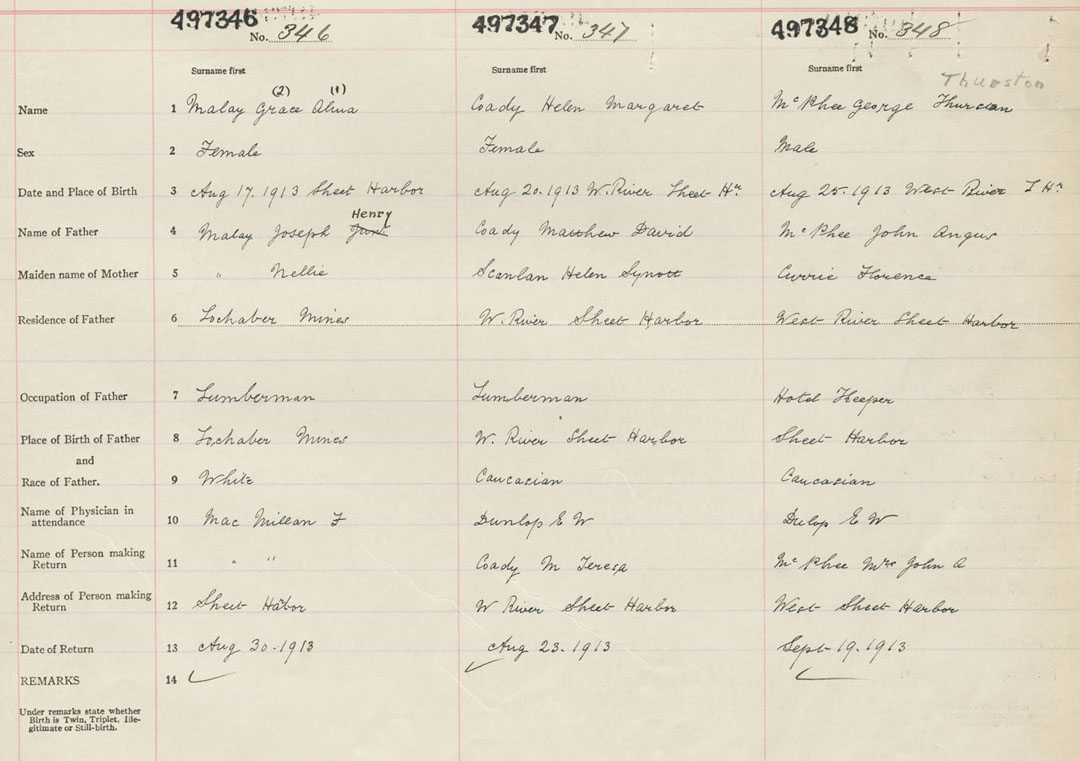 497346 No. 346 497347 No. 347 497348 No. 348
Surname first Surname first Surname first Thurston
(2) (1)
Name 1 Malay Grace Alma Coady Helen Margaret McPhee George
Sex 2 Female Female Male
Date and Place of Birth 3 Aug 17. 1913 Sheet Harbor Aug 20. 1913 W. River Sheet Hr Aug 25. 1913 West River S Hr
Henry
Name of Father 4 Malay Joseph Coady Matthew David McPhee John Angus
Maiden name of Mother 5 " Nellie Scanlan Helen Synott Currie Florence
Residence of Father 6 Lochaber Mines W. River Sheet Harbor West River Sheet Harbor
Occupation of Father 7 Lumberman Lumberman Hotel Keeper
Place of Birth of Father 8 Lochaber Mines W. River Sheet Harbor Sheet Harbor
and
Race of Father. 9 White Caucasian Caucasian
Name of Physician in
attendance 10 Mac Millan F Dunlop E W Dulop E W
Name of Person making
Return 11 " " Coady M Teresa McPhee Mrs John A
Address of Person making
Return 12 Sheet Habor W River Sheet Harbor West Sheet Harbor
Date of Return 13 Aug 30. 1913 Aug 23. 1913 Sept 19. 1913
REMARKS 14
Under remarks state whether
Birth is Twin, Triplet, Ille-
gitimate or Still-birth.